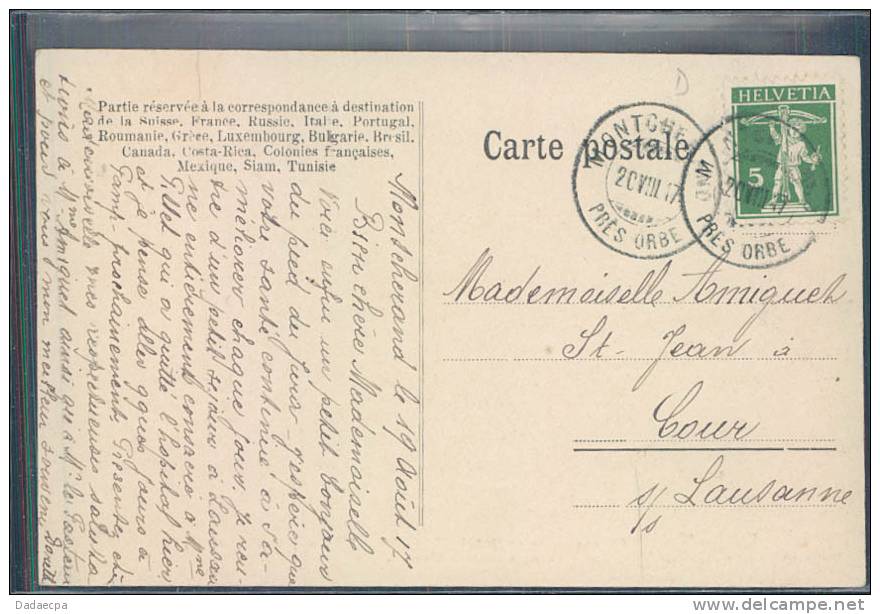 Partie réservée à la correspondance à destination
de la Suisse, France, Russie, Italie, Portugal,
Roumanie, Grèce, Luxembourg, Bulgarie, Brésil,
Canada, Costa-Rica, Colonies françaises,
Mexique, Siam, Tunisie
Carte postale
HELVETIA
5
MONTCHE
20 VIII 17
PRÈS ORBE
20 VIII 17
PRÈS ORBE
D
Mademoiselle Amiguet
St-Jean à
Cour
s/s Lausanne
Montcherand le 19 Août 17
Bien chère Mademoiselle
Voici enfin un petit bonjour
du pied du Jura j'espère que
votre santé continue à s'a-
méliorer chaque jour. Je
tre d'un petit séjour à Lausan
ne entièrement consacré à Mme
Pittet qui a quitté l'hôpital hier
et je pense aller qques jours à
prochainement. Présentez, chère
Mademoiselle mes respectueuses saluta
tions à Mme Amiguet ainsi qu'à Mr le Pasteur
et pour vous mon meilleur souvenir
Dadaecpa
delcampe.net